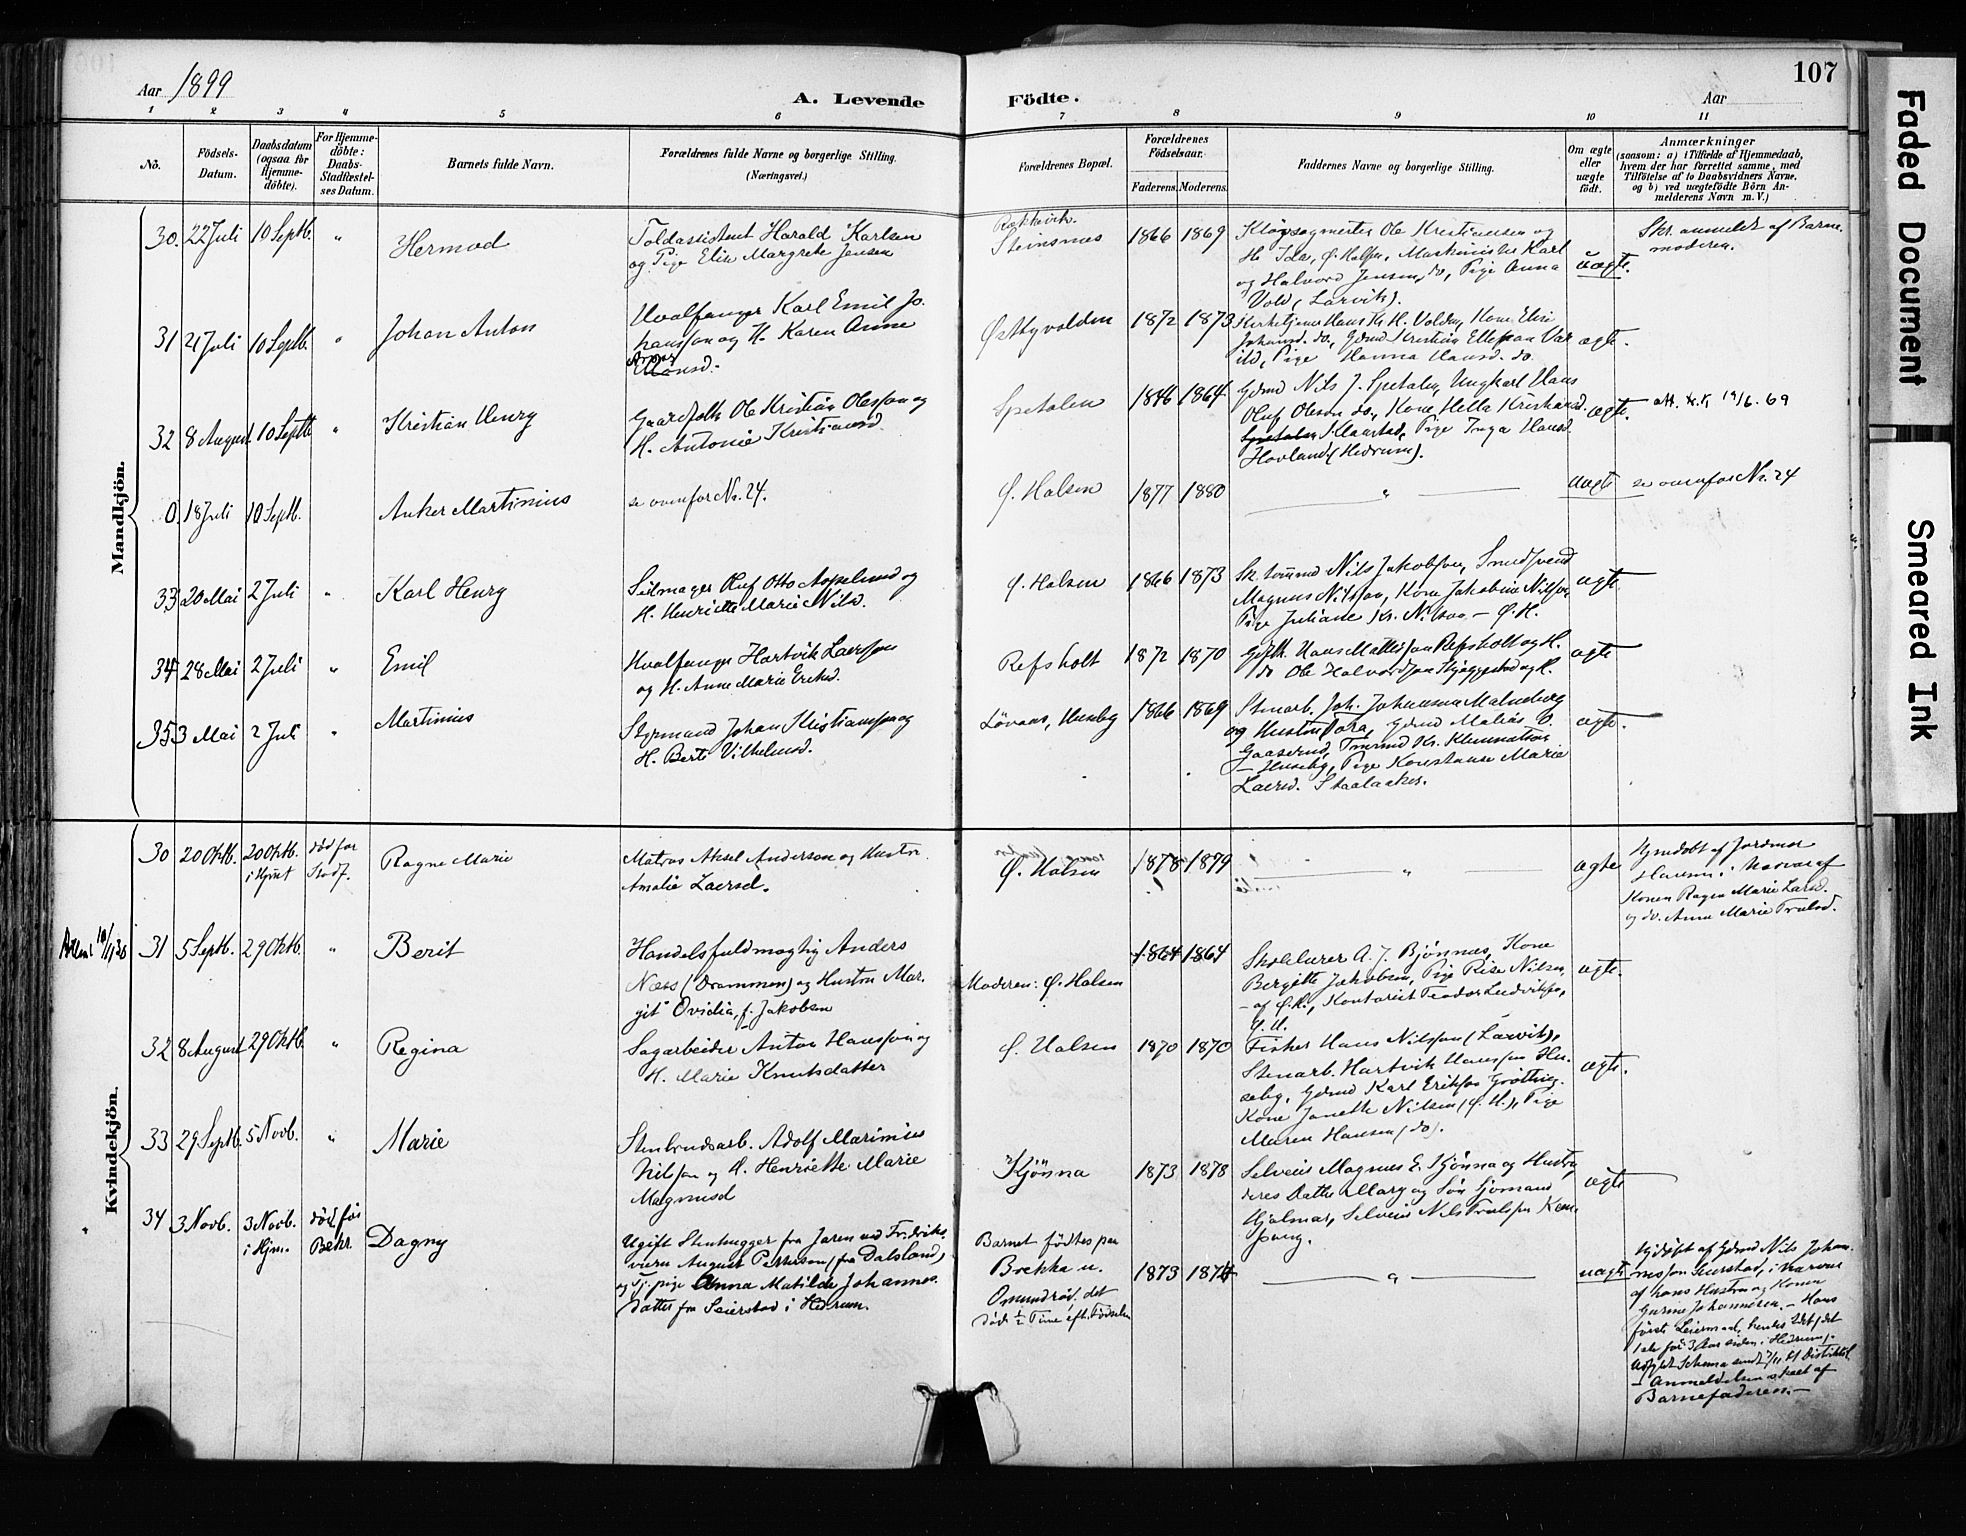 107
Aar 1899
A. Levende Födte.
Aar
1 2 3 4 5 6 7 8 9 10 11
No.
Födsels-Datum.
Daabsdatum (ogsaa for Hjemme-döbte).
For Hjemme-döbte: Daabs-Stadfæstel-ses Datum.
Barnets fulde Navn.
Forældrenes fulde Navne og borgerlige Stilling. (Næringsvei.)
Forældrenes Bopæl.
Forældrenes Födselsaar.
Faderens. Moderens.
Faddernes Navne og borgerlige Stilling.
Om ægte eller uægte födt.
Anmærkninger
(saasom: a) i Tilfælde af Hjemmedaab,
hvem der har forrettet samme, med
Tilföielse af to Daabsvidners Navne,
og b) ved uægtefödte Börn An-
melderens Navn m. V.)
Mandkjön.
30. 22 Juli 10 Septb. " Hermod
Toldassistent Harald Karlsen
og Pige Elise Margrete Jensen
Steinsnes 1866 1869
Ole Kristiansen og
H. Ida, Ø. Halsen, Maskinister Karl
og Halvord Jensen, do, Pige Anna
Vold, (Larvik).
uægte.
Skr. anmeldt af Barne-
moderen.
31 21 Juli 10 Septb. " Johan Anton
Hvalfanger Karl Emil Jo-
hansson og H. Karen Anne
1872 1873
Kirketjener Hans Kr. H. Volden, Kone Elise
Johansd. do, Gdmd Kristian Ellefsen Var-
ild, Pige Hanna Hansd. do.
ægte.
32 8 August 10 Septb. " Kristian Henry
Gaardfolk Ole Kristian Olesson og
H. Antonie Kristiansd.
Spetalen 1846 1864
Gdmd Nils J. Spetalen, Ungkarl Hans
Oluf Olsson do, Kone Hella Kristiansd.
Klaastad, Pige Inga Hansd.
Hovland (Hedrum).
ægte.
att. 19/6. 69
0. 18 Juli 10 Septb. Anker Martinius
se ovenfor Nr. 24.
Ø. Halsen 1877 1880 " uægte se ovenfor No. 24
33 20 Mai 2 Juli " Karl Henry
Seilmager Oluf Otto Aspelund og
H. Henriette Marie Nilsd.
Ø. Halsen 1866 1873
Sk. tømmd Nils Jakobsen, Smedsvend
Magnus Nilsson, Kone Jakobine Nilsen,
Pige Juliane Kr. Nilsen – Ø. H.
ægte
34 28 Mai 2 Juli " Emil
Hvalfanger Hartvik Laersson
og H. Anne Marie Eriksd.
Refsholt 1872 1870
Gdfk. Hans Mathisson Refsholt og H.
do Ole Halvordson og H.
ægte
35 3 Mai 2 Juli " Martinius
Styrmand Johan Kristiansson og
H. Berte Vilhelmsd.
Løvaas, Huseby 1866 1869
Stenarb. Joh. Johannsen Malmberg
og Hustru Tora, Gdmd Matias O.
Gaaserud, Tmrmd Kr. Klemmetsen
– Huseby, Pige Konstanse Marie
Laersd. Staalaker.
ægte.
Kvindekjön.
30 20 Oktb. 20 Oktb. i Hjmt død før Stadf. Ragne Marie
Matros Aksel Anderson og Hustru
Amalie Laersd.
Ø. Halsen 1878 1879 " ægte
Hjmdøbt af Jordmor
Hansen i Nærvær af
Konen Ragna Marie Larsd.
og do. Anne Marie Trulsd.
31 5 Septb. 29 Oktb. " Berit
Handelsfuldmægtig Anders
Næss (Drammen) og Hustru Mar-
git Ovidia, f. Jakobsen
Moderen: Ø. Halsen 1864 1864
Skolelærer A. J. Bjønnes, Kone
Bergitte Jakobsen, Pige Rise Nilsen,
– af Ø. H., Kontorist Teodor Ludviksen,
Ø. H.
ægte
32 8 August 29 Oktb. " Regina
Sagarbeider Anton Hansson og
H. Marie Knutsdatter
Ø. Halsen 1870 1870
Fisker Hans Nilsson (Larvik),
Stenarb. Hartvik Hansson Hu-
seby, Gdmd Karl Eriksen Grøtting,
Kone Janette Nilsen (Ø. H.), Pige
Maren Hansen (do).
ægte.
33 29 Septb. 5 Novb. " Marie
Stenbrudsarb. Adolf Marinius
Nilsson og H. Henriette Marie
Magnusd
Kjønna 1873 1878
Selveier Magnus E. Kjønna og Hustru,
deres Datter Mary og Søn Sjømand
Hjalmar, Selveier Nils Trulsson
ægte
34 3 Novb. 3 Novb. i Hjm. død før Bekr. Dagny
Ugift Stenhugger fra Jaren ved Fredriks-
værn August Petterson (fra Dalsland)
og Tj. pige Anna Matilde Johannes-
datter fra Seierstad i Hedrum.
Barnet fødtes paa
Brekka u.
Omundrød. det
døde ½ Time eft. Fødselen
1873 1874 " uægte
Hjdøpt af Gdmd Nils Johan-
nesson Seierstad, i Nærvær
af hans Hustru og Konen
Gurine Johannesen. – Hans
første Leiermaal, hendes 2det (det
1ste for 3 Aar siden i Hedrum).
– Anmeldelsen skeet af
Barnefaderen. –
Faded Document
Smeared Ink